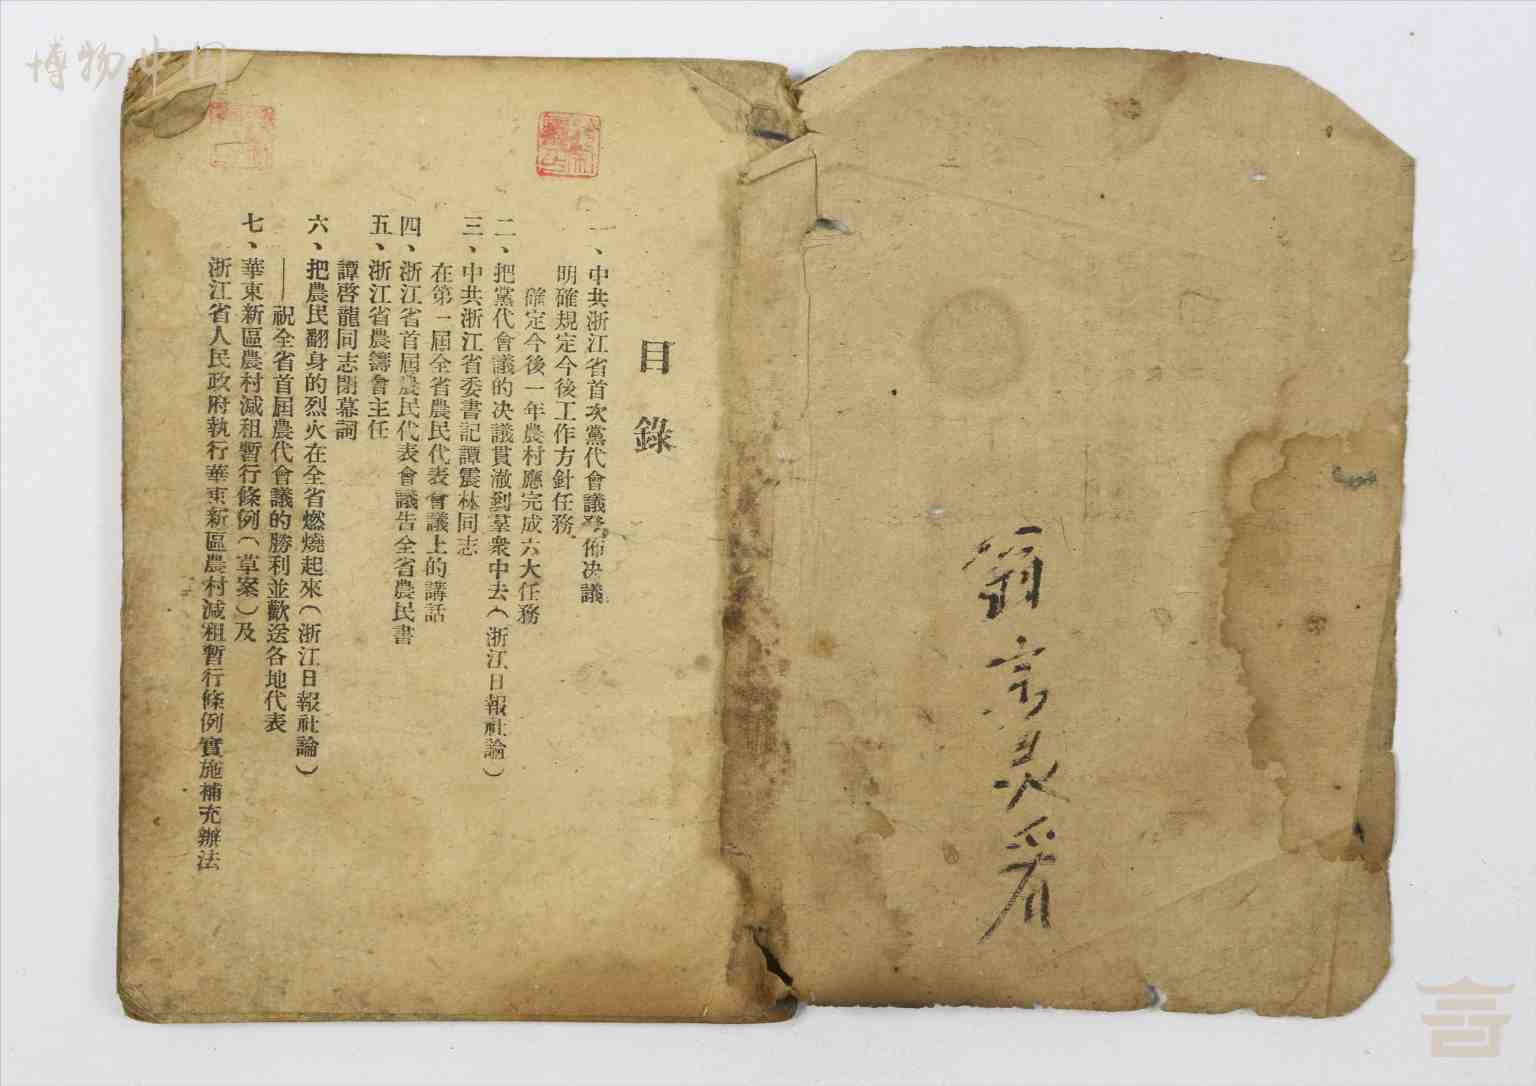 博物中国
目錄
一、中共浙江省首次黨代會議發佈决議
明確規定今後工作方針任務
確定今後一年農村應完成六大任務
二、把黨代會議的决議貫澈到羣衆中去（浙江日報社論）
三、中共浙江省委書記譚震林同志
在第一屆全省農民代表會議上的講話
四、浙江省首屆農民代表會議告全省農民書
五、浙江省農籌會主任
譚啓龍同志閉幕詞
六、把農民翻身的烈火在全省燃燒起來（浙江日報社論）
——祝全省首屆農代會議的勝利並歡送各地代表
七、華東新區農村減租暫行條例（草案）及
浙江省人民政府執行華東新區農村減租暫行條例實施補充辦法